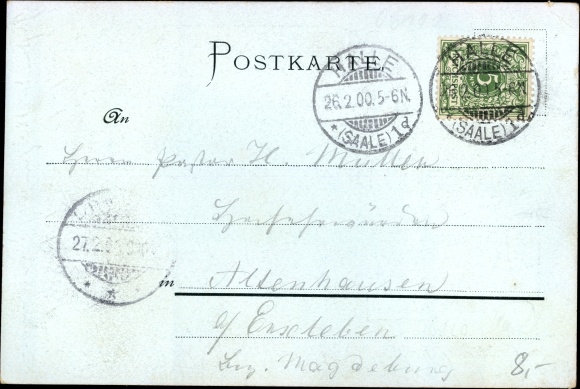 POSTKARTE
HALLE
26.2.00.5-6N.
* (SAALE) 1d
HALLE
(SAALE) 1d
5
An
Herrn Pastor H. Müller
Hochehrwürden
27.2.00
in Altenhausen
a/ Erxleben
Bez. Magdeburg
8,-